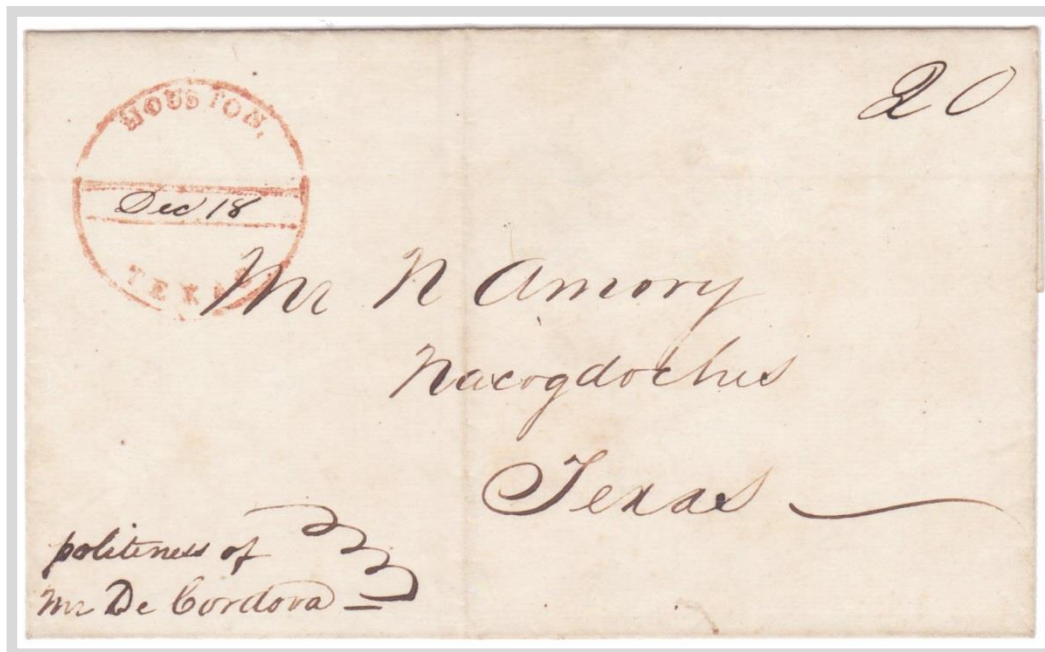 20
HOUSTON.
Dec 18
TEXAS
Mr N Amory
Nacogdoches
Texas
politeness of
Mr De Cordova